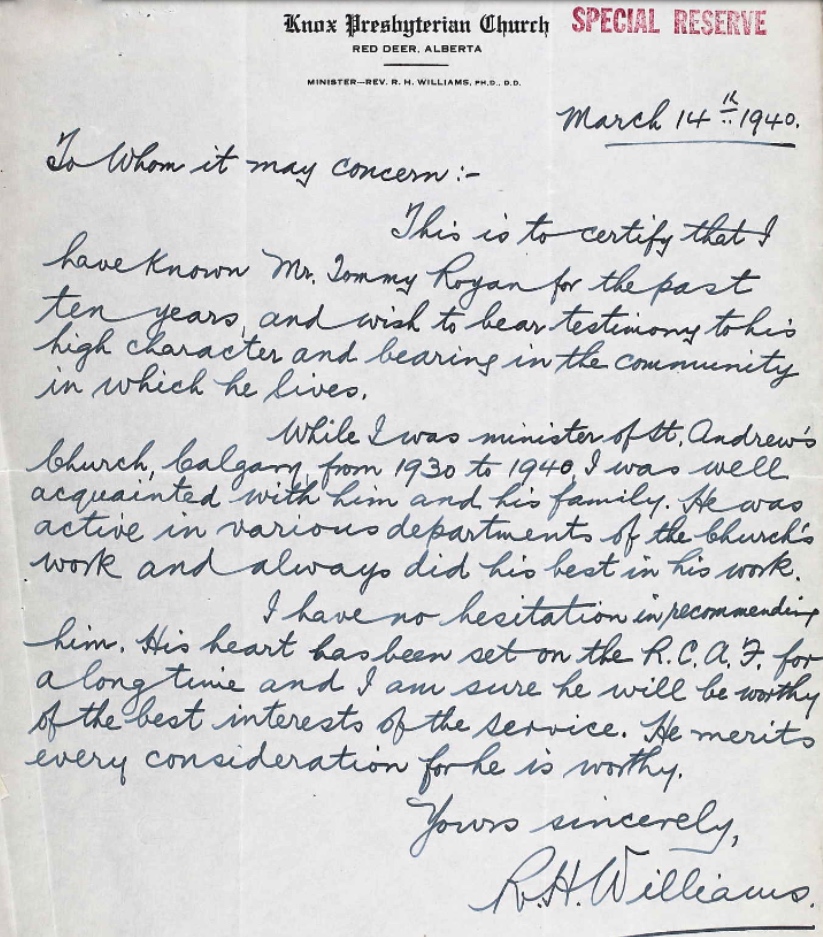 Knox Presbyterian Church SPECIAL RESERVE
RED DEER, ALBERTA
MINISTER—REV. R. H. WILLIAMS, PH.D., D.D.
March 14th 1940.
To Whom it may concern:-
This is to certify that I
have known Mr. Tommy Royan for the past
ten years, and wish to bear testimony to his
high character and bearing in the community
in which he lives.
While I was minister of St. Andrew's
Church, Calgary, from 1930 to 1940, I was well
acquainted with him and his family. He was
active in various departments of the Church's
work and always did his best in his work.
I have no hesitation in recommending
him. His heart has been set on the R.C.A.F. for
a long time and I am sure he will be worthy
of the best interests of the service. He merits
every consideration for he is worthy.
Yours sincerely,
R.H. Williams.